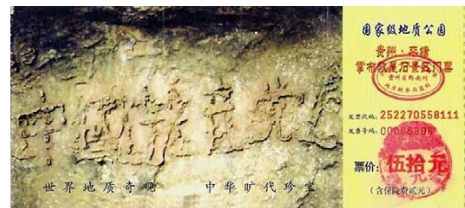 中國共产党亡
世界地质奇观 中华旷代珍宝
国家级地质公园
贵州·平塘
掌布藏字石景区门票
贵州省黔南州
发票代码: 252270558111
发票号码: 00006306
票价: 伍拾元
(含保险费贰元)